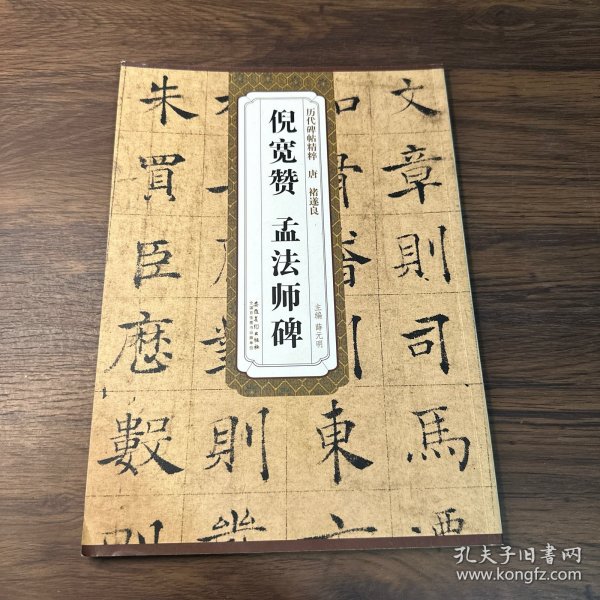 历代碑帖精粹 唐 褚遂良
倪宽赞 孟法师碑
主编 薛元明
安徽美术出版社
文章則司馬遷
東
則
朱買臣歷數則
孔夫子旧书网
www.kongfz.com